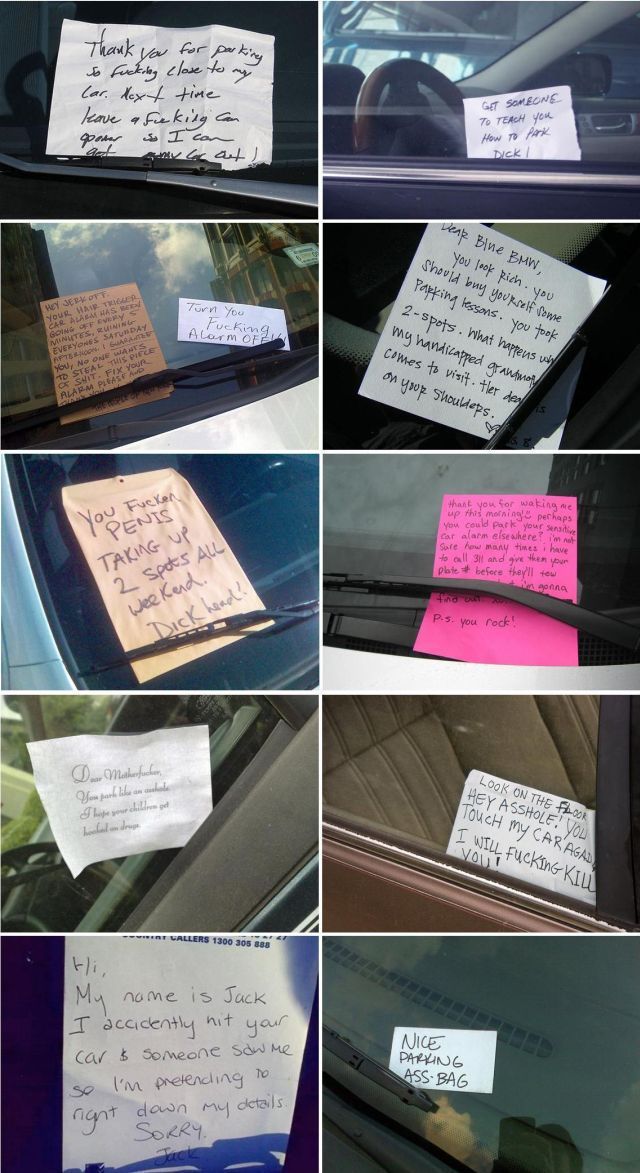 Thank you for parking
so fucking close to my
car. Next time
leave a fucking can
opener so I can
get my car out!
GET SOMEONE
TO TEACH YOU
HOW TO PARK
DICK!
HEY JERKOFF.
YOUR HAIR TRIGGER
CAR ALARM HAS BEEN
GOING OFF EVERY 5
MINUTES, RUINING
EVERYONES SATURDAY
AFTERNOON. I GUARANTEE
YOU, NO ONE WANTS
TO STEAL THIS PIECE
OF SHIT. FIX YOUR
ALARM PLEASE AND
Turn You
Fucking
Alarm OFF!
Dear Blue BMW,
you look rich. you
should buy yourself some
parking lessons. you took
2-spots. what happens
my handicapped
comes to visit. Her
on your shoulders.
You Fucken
PENIS
TAKING UP
2 SPOTS ALL
weekend.
Dick head!
thank you for waking me
up this morning! perhaps
you could park your sensitive
car alarm elsewhere? i'm not
sure how many times i have
to call 311 and give them your
plate # before they'll tow
i'm gonna
find out.
p.s. you rock!
Dear Motherfucker,
You park like an asshole.
I hope your children get
hooked on drugs.
LOOK ON THE FLOOR
HEY ASSHOLE! YOU
TOUCH MY CAR AGAIN
I WILL FUCKING KILL
YOU!
COUNTRY CALLERS 1300 305 888
Hi,
My name is Jack
I accidently hit your
car & someone saw me
so I'm pretending to
right down my details.
SORRY.
Jack
NICE
PARKING
ASS-BAG